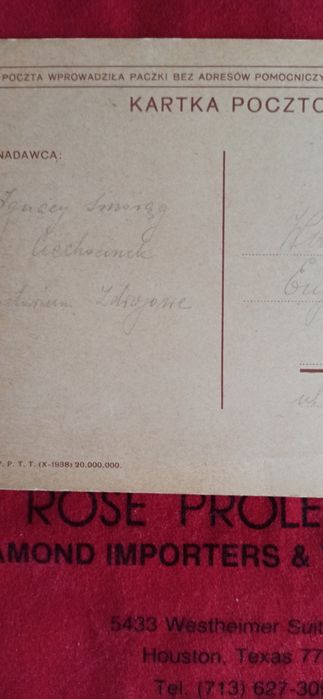 POCZTA WPROWADZIŁA PACZKI BEZ ADRESÓW POMOCNICZY
KARTKA POCZTO
NADAWCA:
Ignacy
Ciechocinek
Zdrojowe
ul
P. T. T. (X-1938) 20.000.000.
ROSE PROLE
AMOND IMPORTERS &
5433 Westheimer Suit
Houston, Texas 77
Tel. (713) 627-30